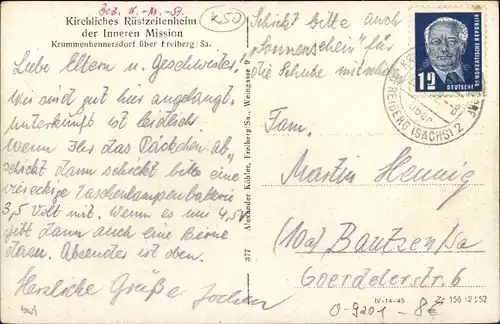 Kirchliches Rüstzeitenheim
der Inneren Mission
Krummenhennersdorf über Freiberg/Sa.
K50
Liebe Eltern u. Geschwister,
Wir sind gut hier angelangt.
Unterkunft ist leidlich.
Wenn Ihr das Päckchen ab-
schickt dann schickt bitte eine
viereckige Taschenlampenbatterie
3,5 Volt mit. Wenn es nur 4,5V
gibt dann auch eine Birne
daran. Absender ist oben.
Herzliche Grüße Jochen
Schickt bitte auch
"Sonnenschein" für
die Schuhe mit
377 Alexander Köhler, Freiberg/Sa., Weingasse 9
12
DEUTSCHE
über
FREIBERG (SACHS) 2
Fam.
Martin Hennig
(10a) Bautzen/Sa
Goerdelerstr. 6
IV-14-45
156 12 52
0-9201 - 8€